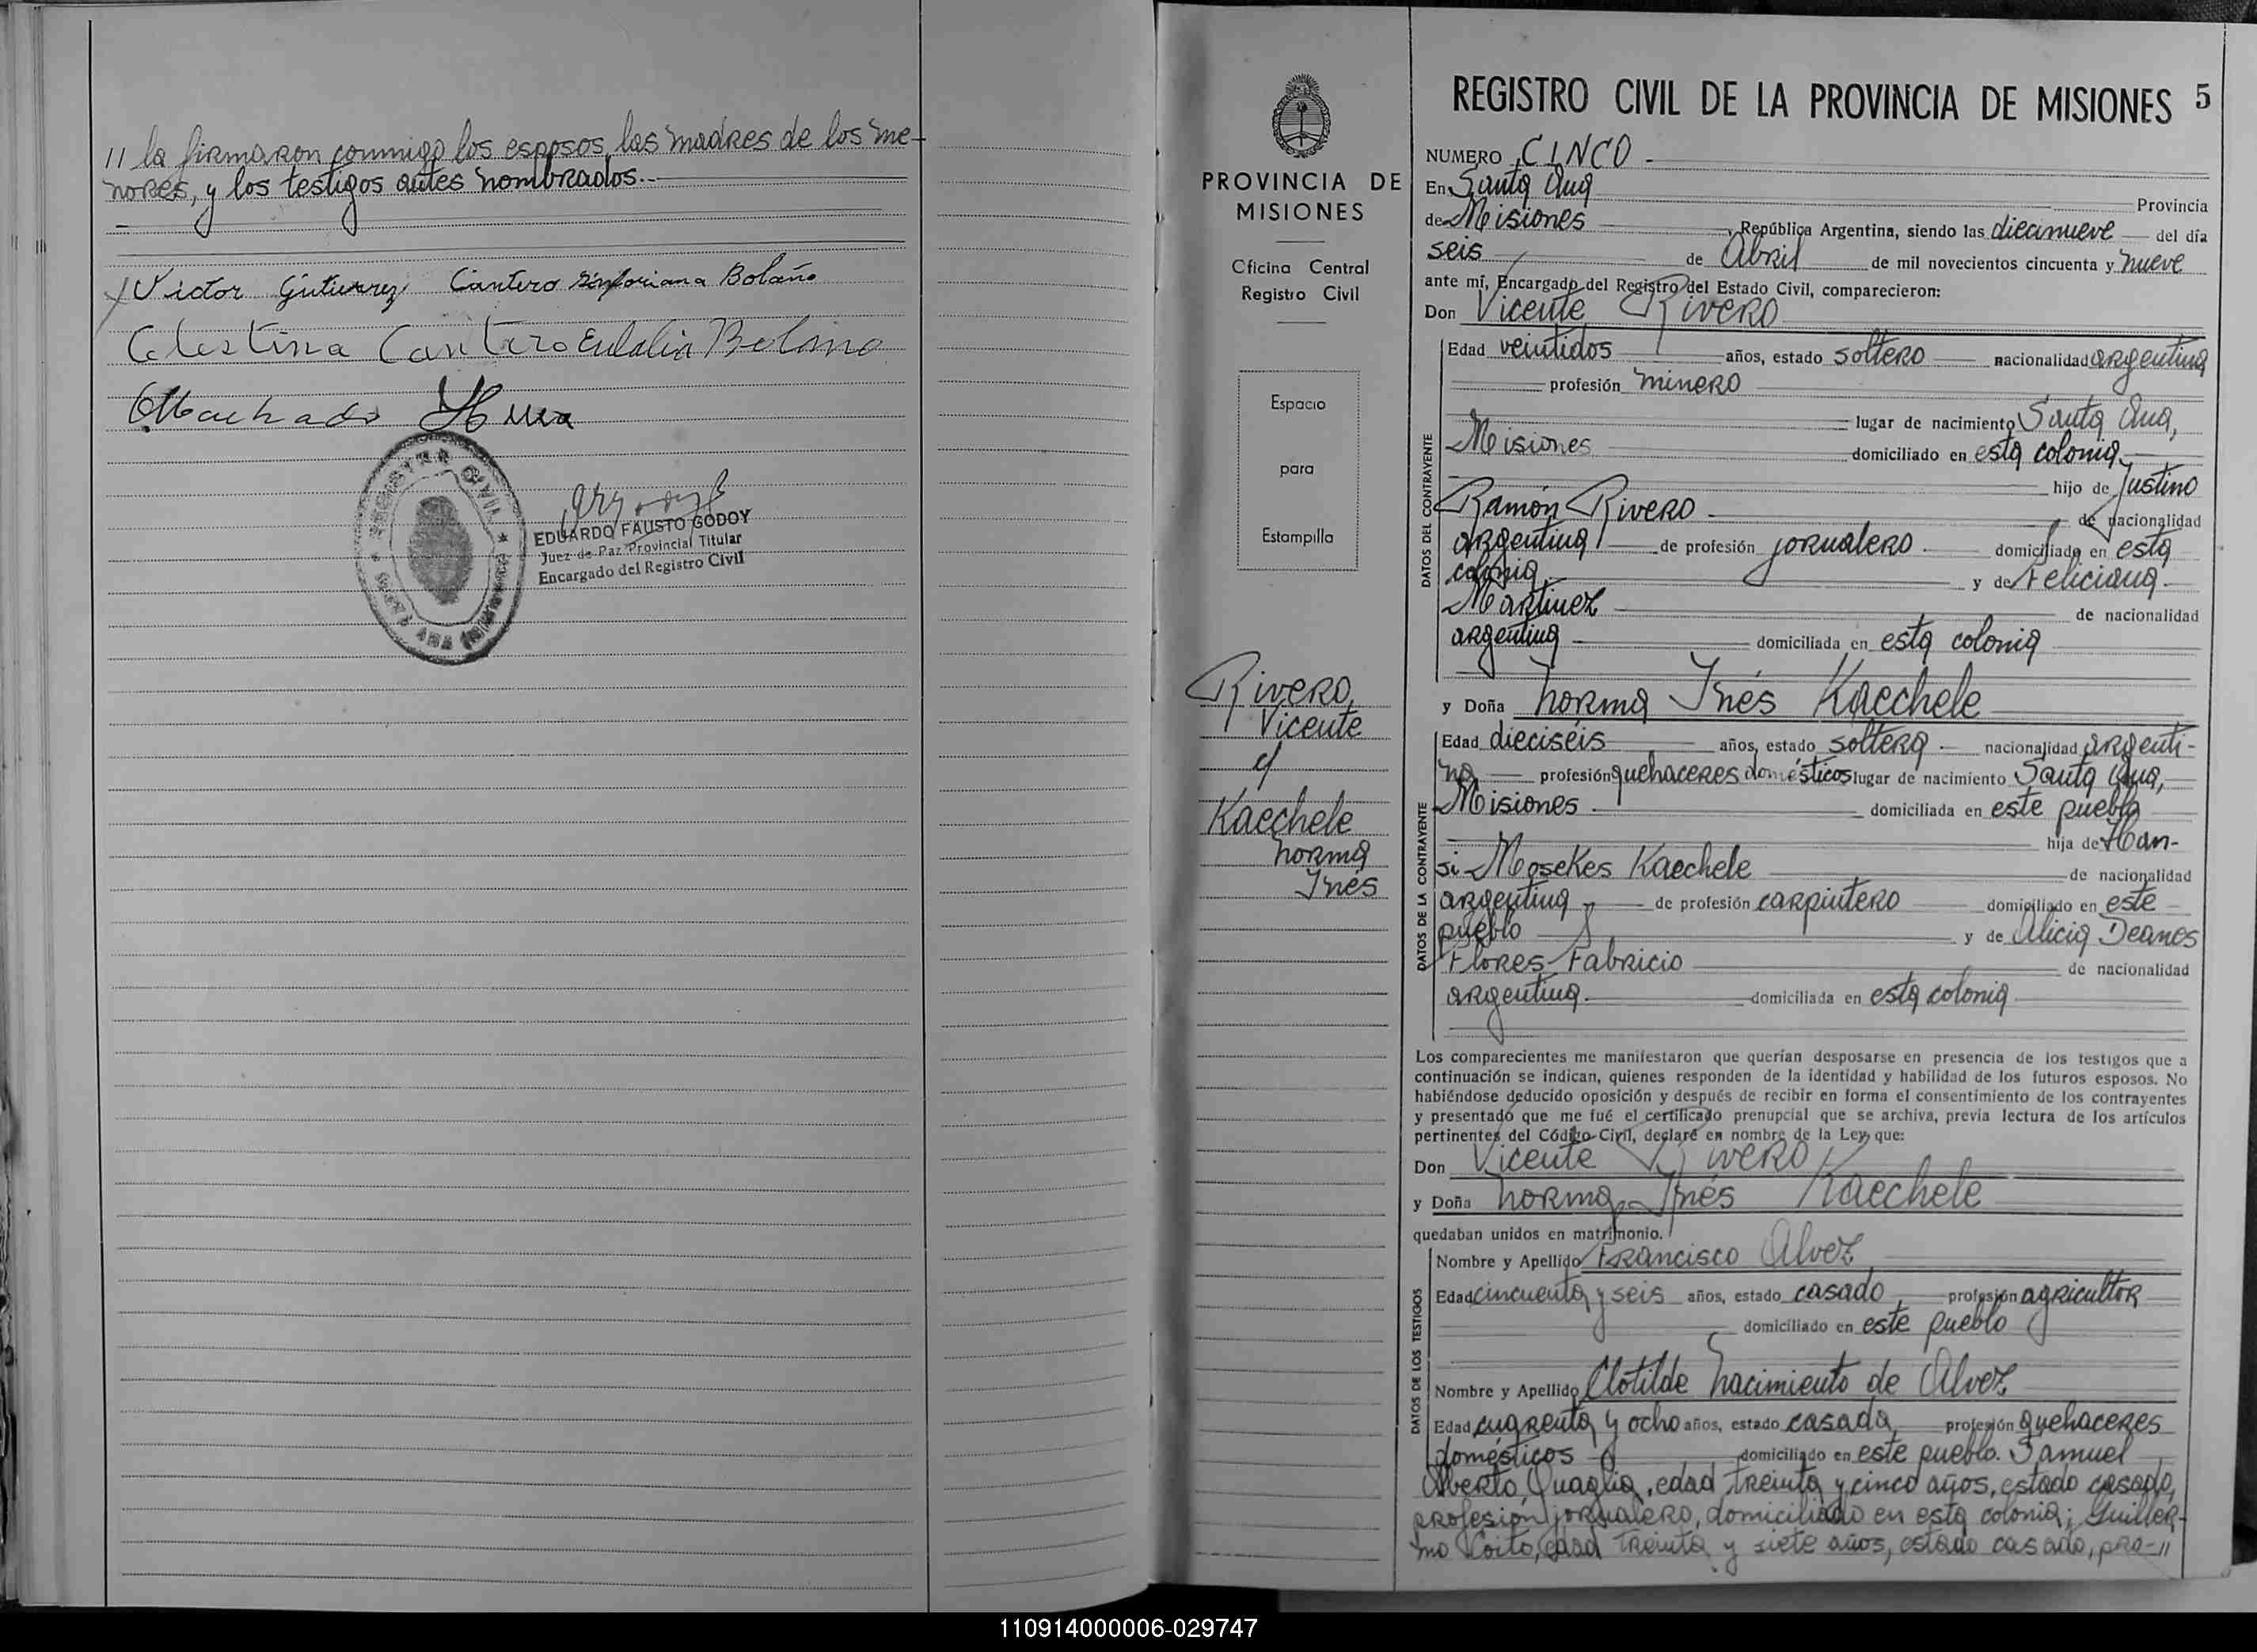 // la firmaron conmigo los esposos, las madres de los me-
nores, y los testigos antes nombrados.-
Victor Gutierrez Cantero Sinforiana Bolaño
Celestina Cantero Eulalia Bolano
Machado
REGISTRO CIVIL
SANTA ANA (MISIONES)
EDUARDO FAUSTO GODOY
Juez de Paz Provincial Titular
Encargado del Registro Civil
PROVINCIA DE
MISIONES
Oficina Central
Registro Civil
Espacio
para
Estampilla
Rivero,
Vicente
y
Kaechele
Norma
Inés
REGISTRO CIVIL DE LA PROVINCIA DE MISIONES 5
NUMERO CINCO.-
En Santa Ana Provincia
de Misiones, República Argentina, siendo las diecinueve del día
seis de Abril de mil novecientos cincuenta y nueve
ante mí, Encargado del Registro del Estado Civil, comparecieron:
Don Vicente Rivero
DATOS DEL CONTRAYENTE
Edad veintidos años, estado soltero nacionalidad argentina
profesión minero
lugar de nacimiento Santa Ana,
Misiones domiciliado en esta colonia,
hijo de Justino
Ramón Rivero de nacionalidad
argentina de profesión jornalero domiciliado en esta
colonia y de Feliciana
Martinez de nacionalidad
argentina domiciliada en esta colonia
y Doña Norma Inés Kaechele
DATOS DE LA CONTRAYENTE
Edad dieciséis años, estado soltera nacionalidad argenti-
na profesión quehaceres domésticos lugar de nacimiento Santa Ana,
Misiones domiciliada en este pueblo
hija de Han-
si Mosekes Kaechele de nacionalidad
argentina de profesión carpintero domiciliado en este
pueblo y de Alicia Deanes
Flores Fabricio de nacionalidad
argentina. domiciliada en esta colonia
Los comparecientes me manifestaron que querían desposarse en presencia de los testigos que a
continuación se indican, quienes responden de la identidad y habilidad de los futuros esposos. No
habiéndose deducido oposición y después de recibir en forma el consentimiento de los contrayentes
y presentado que me fué el certificado prenupcial que se archiva, previa lectura de los artículos
pertinentes del Código Civil, declaré en nombre de la Ley que:
Don Vicente Rivero
y Doña Norma Inés Kaechele
quedaban unidos en matrimonio.
DATOS DE LOS TESTIGOS
Nombre y Apellido Francisco Alvez
Edad cincuenta y seis años, estado casado profesión agricultor
domiciliado en este pueblo
Nombre y Apellido Clotilde Nacimiento de Alvez
Edad cuarenta y ocho años, estado casada profesión quehaceres
domésticos domiciliado en este pueblo. Samuel
Alberto Quaglia, edad treinta y cinco años, estado casado,
profesión jornalero, domiciliado en esta colonia; Guiller-
mo Coito, edad treinta y siete años, estado casado, pro-//
110914000006-029747